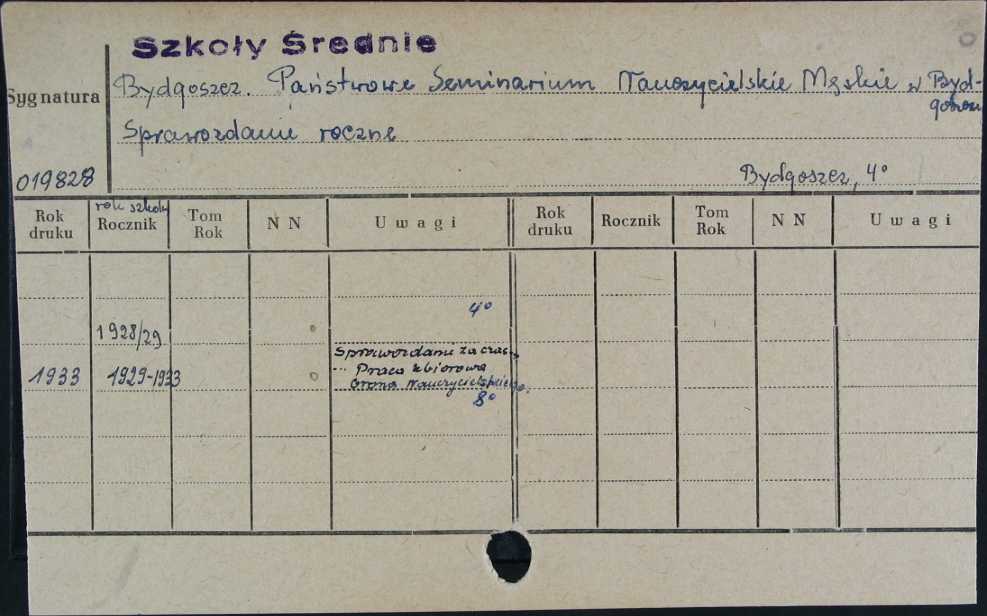 Szkoły Średnie
Sygnatura
Bydgoszcz. Państwowe Seminarium Nauczycielskie Męskie w Byd-
goszczu
Sprawozdanie roczne
019828
Bydgoszcz, 4°
rok szkoly
Rok druku Rocznik Tom Rok N N Uwagi Rok druku Rocznik Tom Rok N N Uwagi
4°
1928/29
Sprawozdanie za czas...
1933 1929-1933 Praca zbiorowa
Grona Nauczycielskiego.
8°